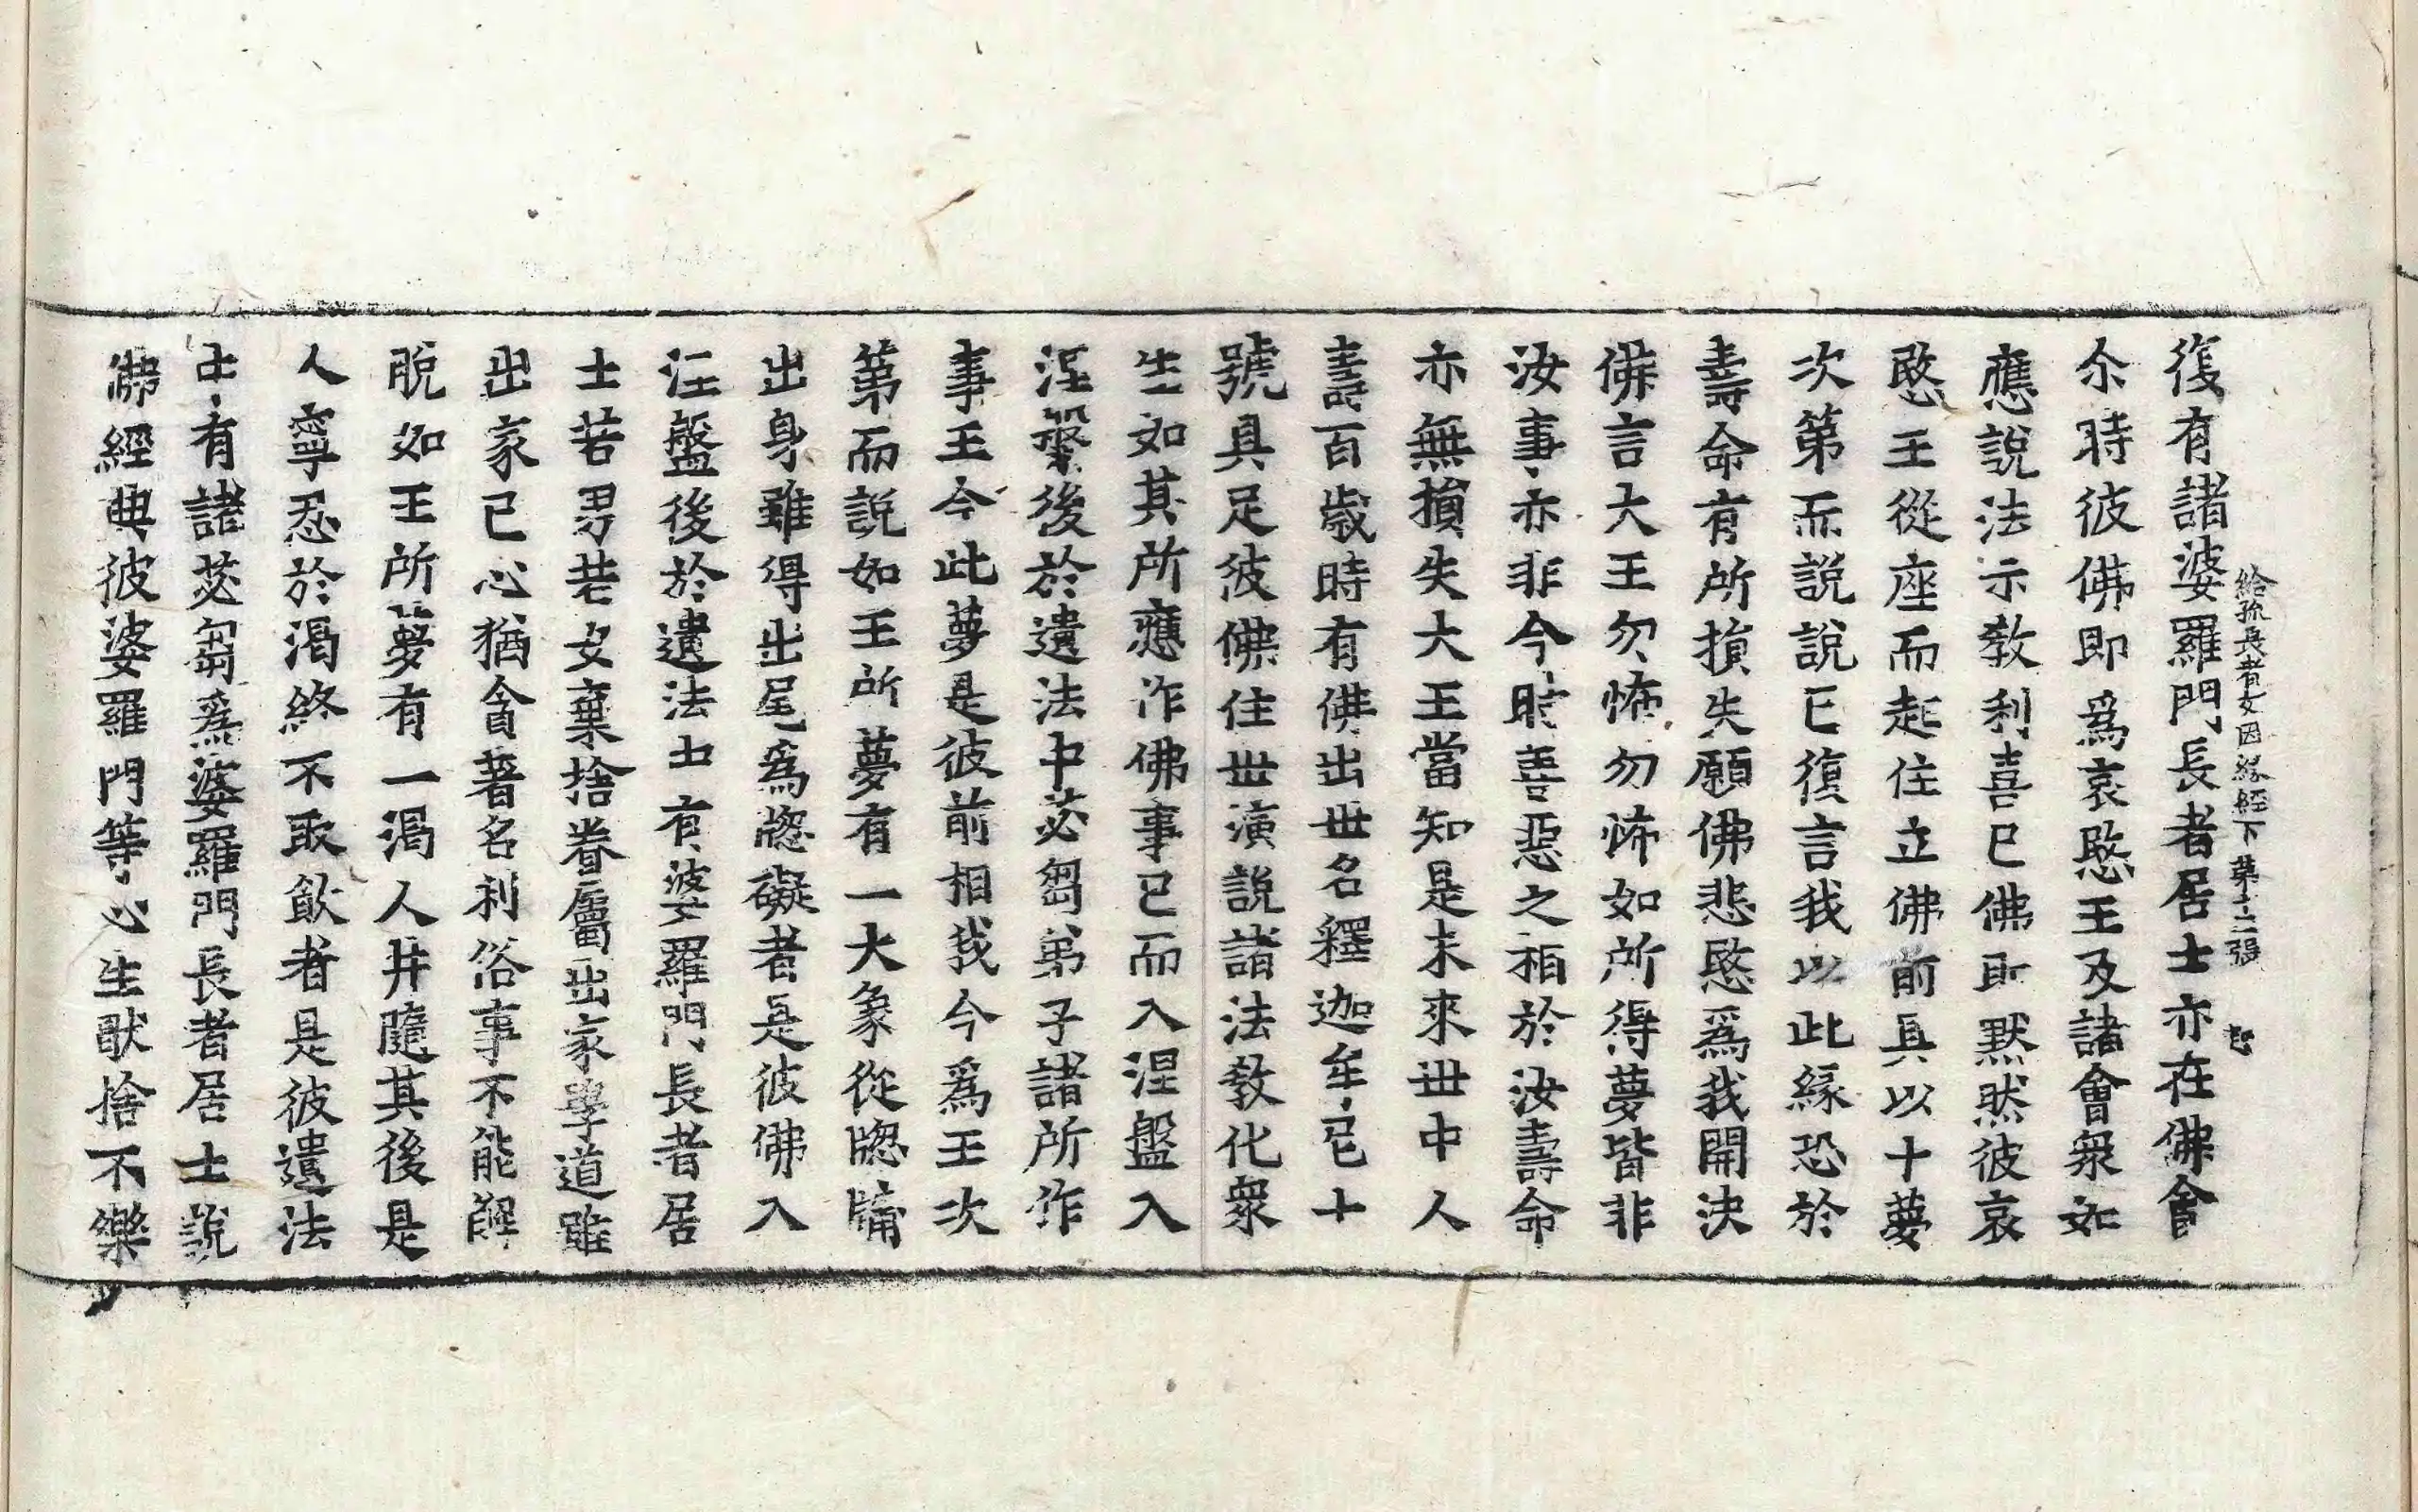 給孤長者女因緣經下 第十二張
復有諸婆羅門長者居士亦在佛會
尒時彼佛即爲哀愍王及諸會衆如
應說法示教利喜已佛即默然彼哀
愍王從座而起住立佛前具以十夢
次第而說說已復言我以此緣恐於
壽命有所損失願佛悲愍爲我開決
佛言大王勿怖勿怖如所得夢皆非
汝事亦非今時善惡之相於汝壽命
亦無損失大王當知是未來世中人
壽百歲時有佛出世名釋迦牟尼十
號具足彼佛住世演說諸法教化衆
生如其所應作佛事已而入涅盤入
涅槃後於遺法中苾芻弟子諸所作
事王今此夢是彼前相我今爲王次
第而說如王所夢有一大象從窓牖
出身雖得出尾爲窓礙者是彼佛入
涅盤後於遺法中有婆羅門長者居
士若男若女棄捨眷屬出家學道雖
出家已心猶貪著名利俗事不能解
脫如王所夢有一渴人井隨其後是
人寧忍於渴終不取飲者是彼遺法
中有諸苾芻爲婆羅門長者居士說
佛經典彼婆羅門等心生猒捨不樂